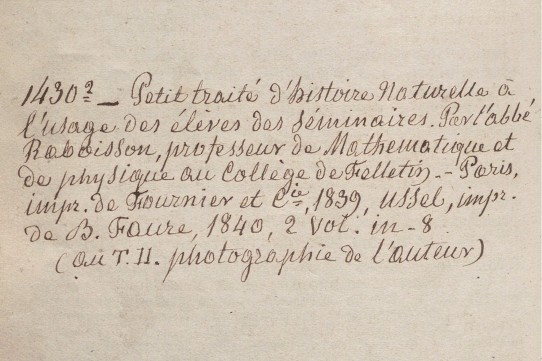 1430² _ Petit traité d'histoire Naturelle à
l'usage des élèves des Séminaires. Par l'abbé
Raboisson, professeur de Mathematique et
de physique au Collège de Felletin. - Paris,
impr. de Fournier et Cie, 1839, Ussel, impr.
de B. Faure, 1840, 2 vol. in-8
(au T. II. photographie de l'auteur)